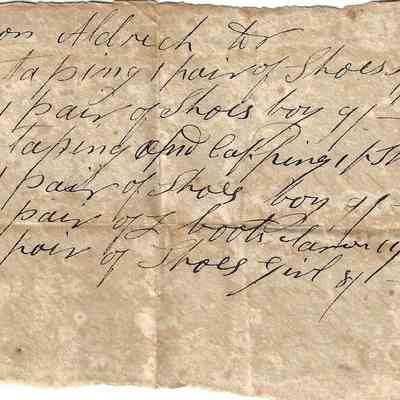 on Aldrich Dr
taping 1 pair of Shoes
1 pair of Shoes boy 9/-
taping and Capping 1 p
1 pair of Shoes boy 9/-
pair of boots
pair of Shoes girl 8/-